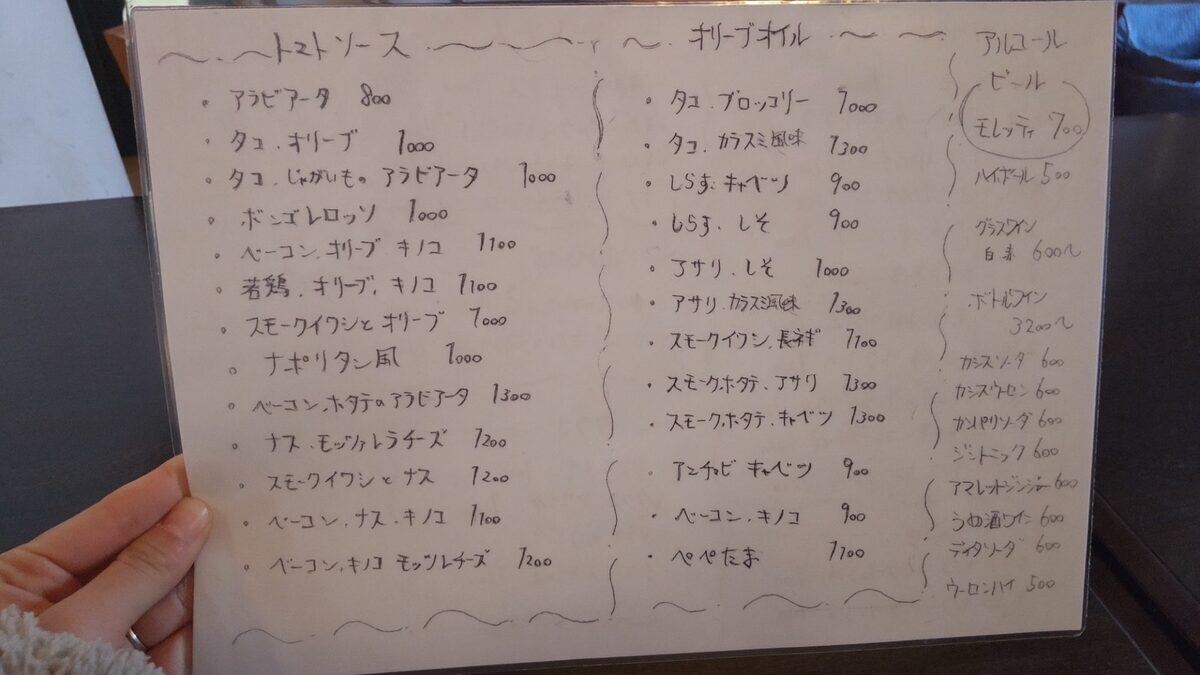 トマトソース
・アラビアータ 800
・タコ、オリーブ 1000
・タコ、じゃがいもの アラビアータ 1000
・ボンゴレロッソ 1000
・ベーコン、オリーブ キノコ 1100
・若鶏、オリーブ、キノコ 1100
・スモークイワシと オリーブ 1000
・ナポリタン風 1000
・ベーコン、ホタテのアラビアータ 1300
・ナス、モッツァレラチーズ 1200
・スモークイワシと ナス 1200
・ベーコン、ナス、キノコ 1100
・ベーコン、キノコ モッツレチーズ 1200
オリーブオイル
・タコ、ブロッコリー 1000
・タコ、カラスミ風味 1300
・しらす、キャベツ 900
・しらす、しそ 900
・アサリ、しそ 1000
・アサリ、カラスミ風味 1300
・スモークイワシ、長ネギ 1100
・スモークホタテ、アサリ 1300
・スモークホタテ、キャベツ 1300
・アンチョビ キャベツ 900
・ベーコン、キノコ 900
・ペペたま 1100
アルコール
ビール
モレッティ 700
ハイボール 500
グラスワイン
白 赤 600〜
ボトルワイン
3200〜
カシスソーダ 600
カシスウーロン 600
カンパリソーダ 600
ジントニック 600
アマレットジンジャー 600
うめ酒ワイン 600
ディタソーダ 600
ウーロンハイ 500